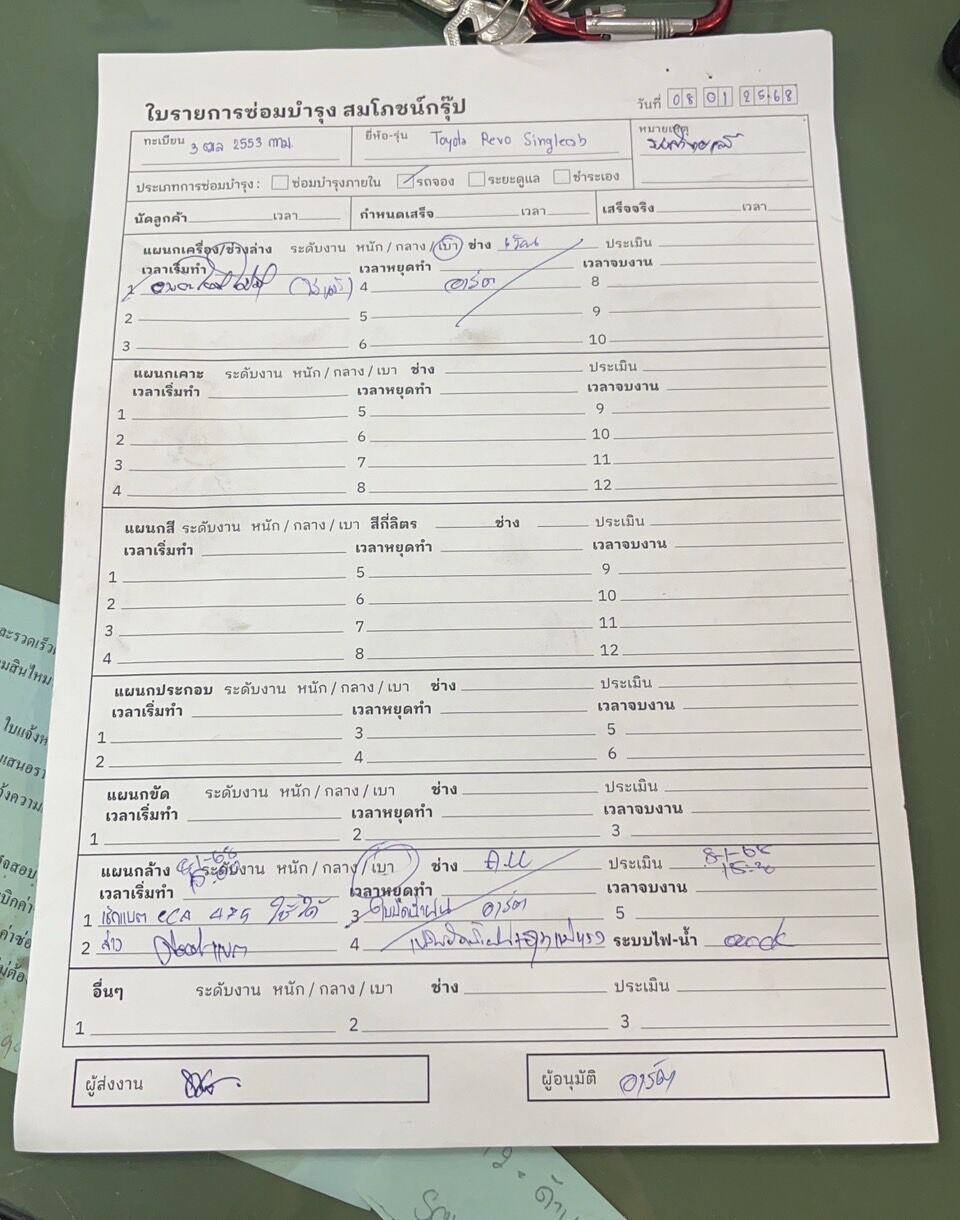 ใบรายการซ่อมบำรุง สมโภชน์กรุ๊ป
วันที่ 08 01 2568
ทะเบียน 2553 กทม. ยี่ห้อ-รุ่น Toyota Revo Singlecab หมายเหตุ
ประเภทการซ่อมบำรุง : ซ่อมบำรุงภายใน รถจอง ระยะดูแล ชำระเอง
นัดลูกค้า เวลา กำหนดเสร็จ เวลา เสร็จจริง เวลา
แผนกเครื่อง/ช่วงล่าง ระดับงาน หนัก / กลาง / เบา ช่าง ประเมิน
เวลาเริ่มทำ เวลาหยุดทำ เวลาจบงาน
1 4 อาร์ต 8
2 5 9
3 6 10
แผนกเคาะ ระดับงาน หนัก / กลาง / เบา ช่าง ประเมิน
เวลาเริ่มทำ เวลาหยุดทำ เวลาจบงาน
1 5 9
2 6 10
3 7 11
4 8 12
แผนกสี ระดับงาน หนัก / กลาง / เบา สีกี่ลิตร ช่าง ประเมิน
เวลาเริ่มทำ เวลาหยุดทำ เวลาจบงาน
1 5 9
2 6 10
3 7 11
4 8 12
แผนกประกอบ ระดับงาน หนัก / กลาง / เบา ช่าง ประเมิน
เวลาเริ่มทำ เวลาหยุดทำ เวลาจบงาน
1 3 5
2 4 6
แผนกขัด ระดับงาน หนัก / กลาง / เบา ช่าง ประเมิน
เวลาเริ่มทำ เวลาหยุดทำ เวลาจบงาน
1 2 3
แผนกล้าง 8-1-68 ระดับงาน หนัก / กลาง / เบา ช่าง ประเมิน 8-1-68
เวลาเริ่มทำ เวลาหยุดทำ เวลาจบงาน
1 เช็กแบต CCA ใช้ได้ 3 ใบปัดน้ำฝน อาร์ต 5
2 4 ระบบไฟ-น้ำ
อื่นๆ ระดับงาน หนัก / กลาง / เบา ช่าง ประเมิน
1 2 3
ผู้ส่งงาน ผู้อนุมัติ อาร์ต